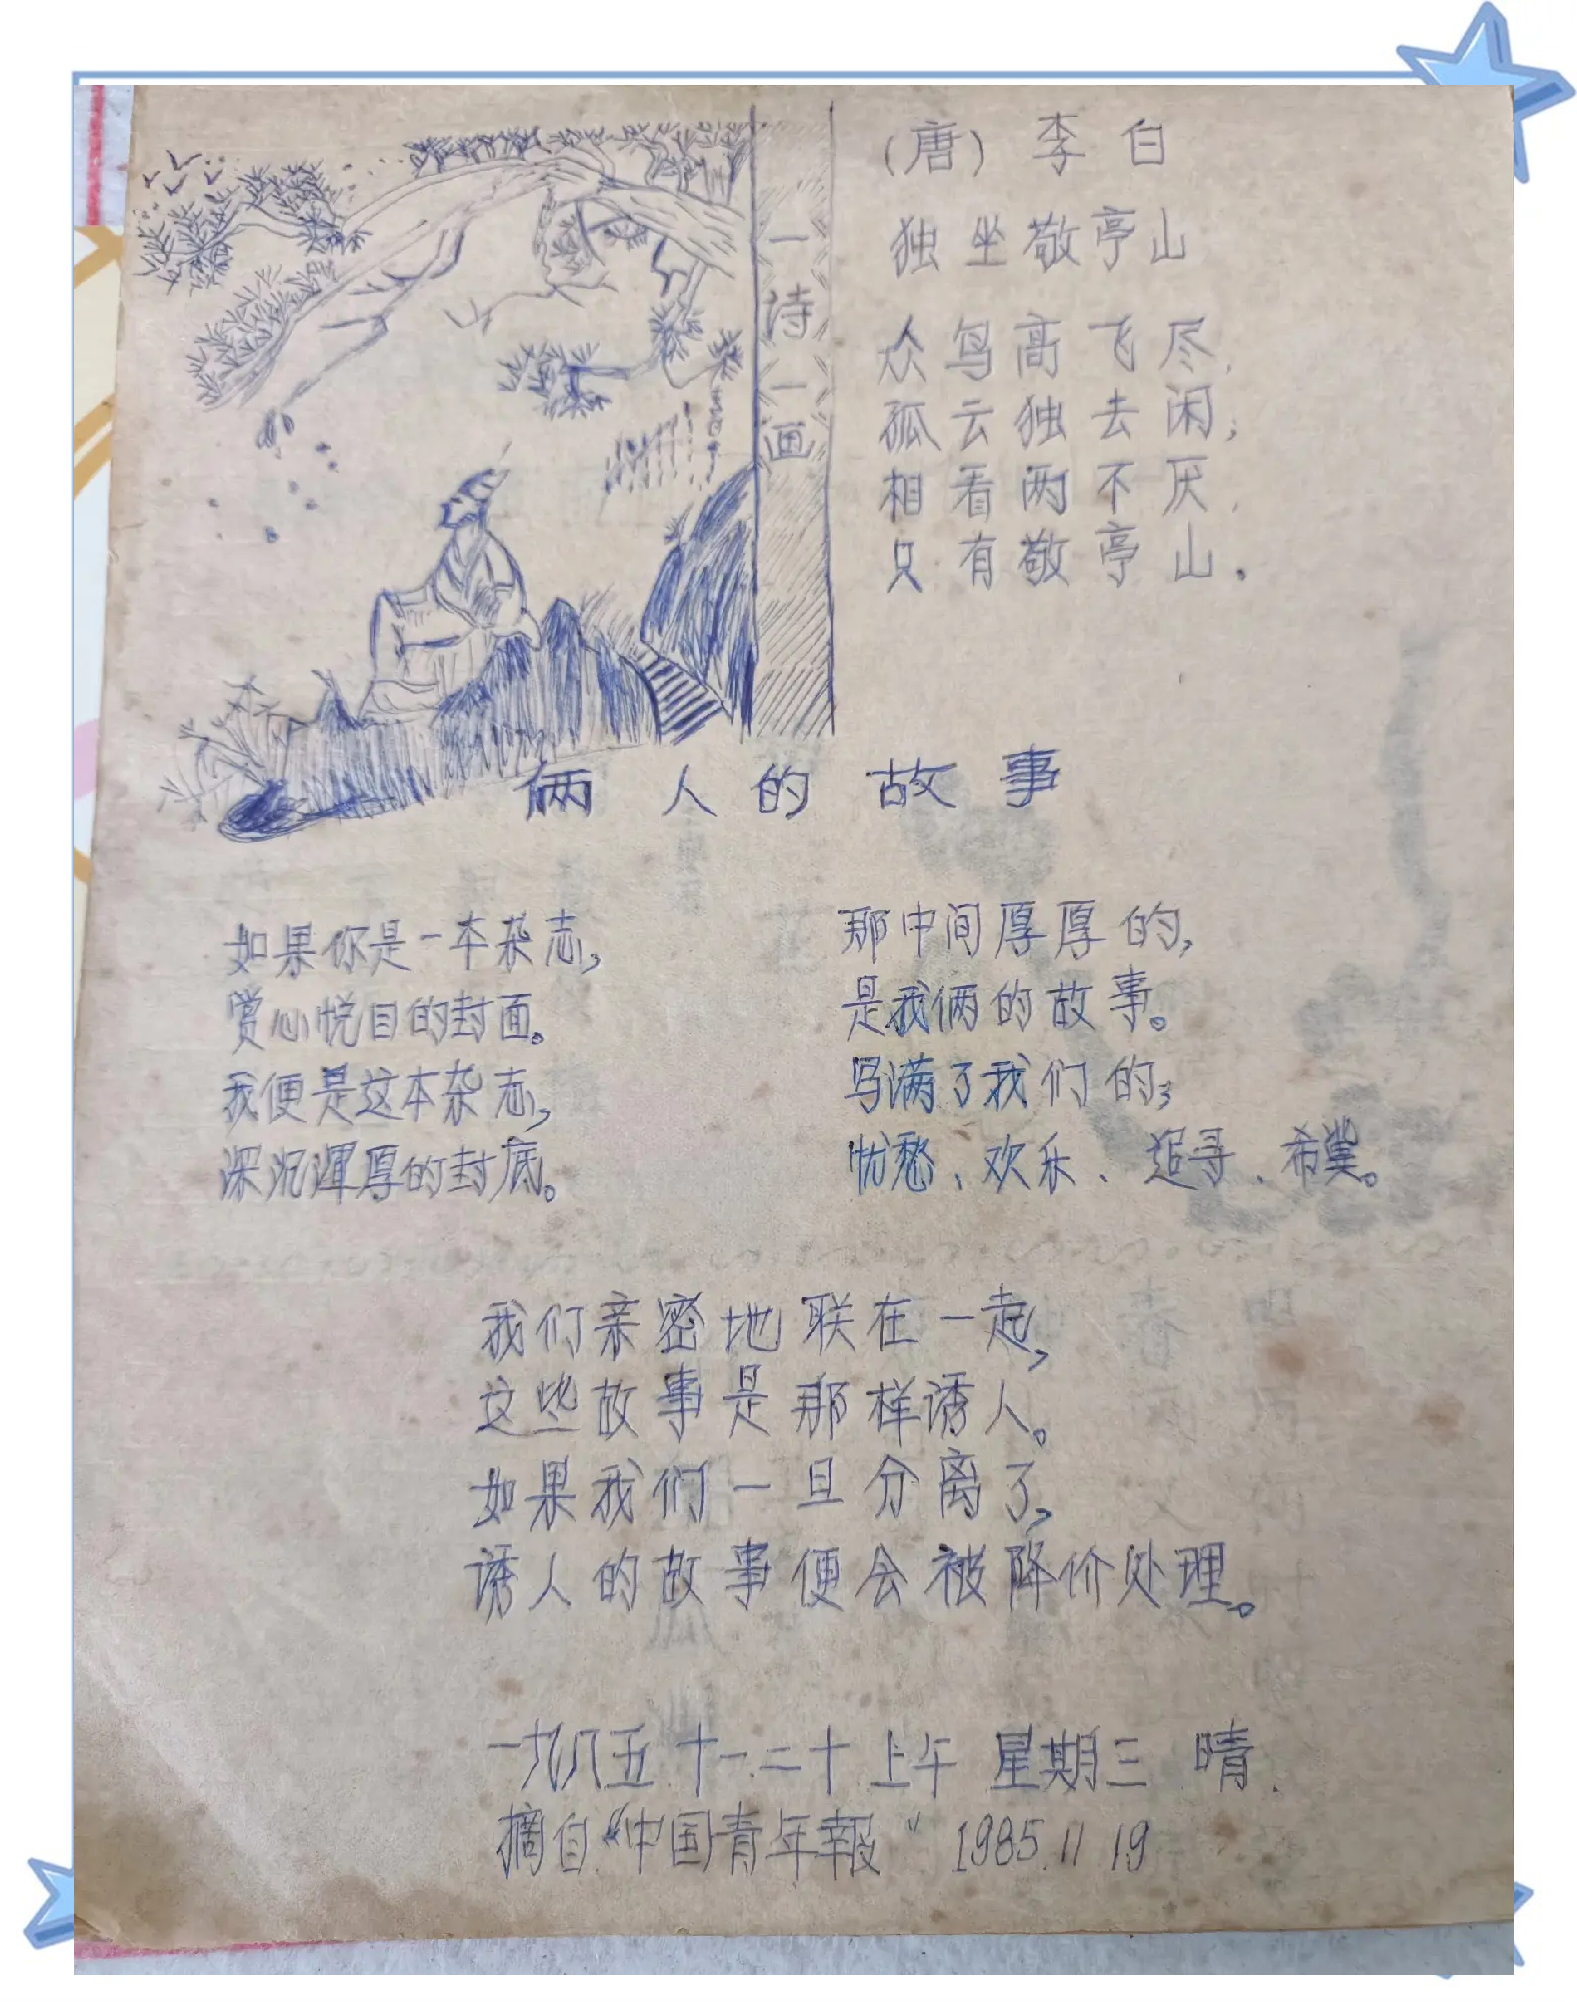 一诗一画
(唐) 李白
独坐敬亭山
众鸟高飞尽,
孤云独去闲;
相看两不厌,
只有敬亭山.
俩人的故事
如果你是一本杂志,
赏心悦目的封面。
我便是这本杂志,
深沉浑厚的封底。
那中间厚厚的,
是我俩的故事。
写满了我们的;
忧愁、欢乐、追寻、希冀。
我们亲密地联在一起,
这些故事是那样诱人。
如果我们一旦分离了,
诱人的故事便会被降价处理。
一九八五.十一.二十上午 星期三 晴.
摘自“中国青年報” 1985.11.19